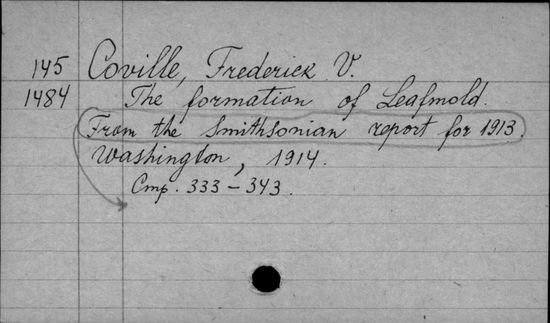 145 Coville, Frederick V.
1484 The formation of Leafmold.
From the Smithsonian report for 1913.
Washington, 1914.
Стр. 333 – 343.